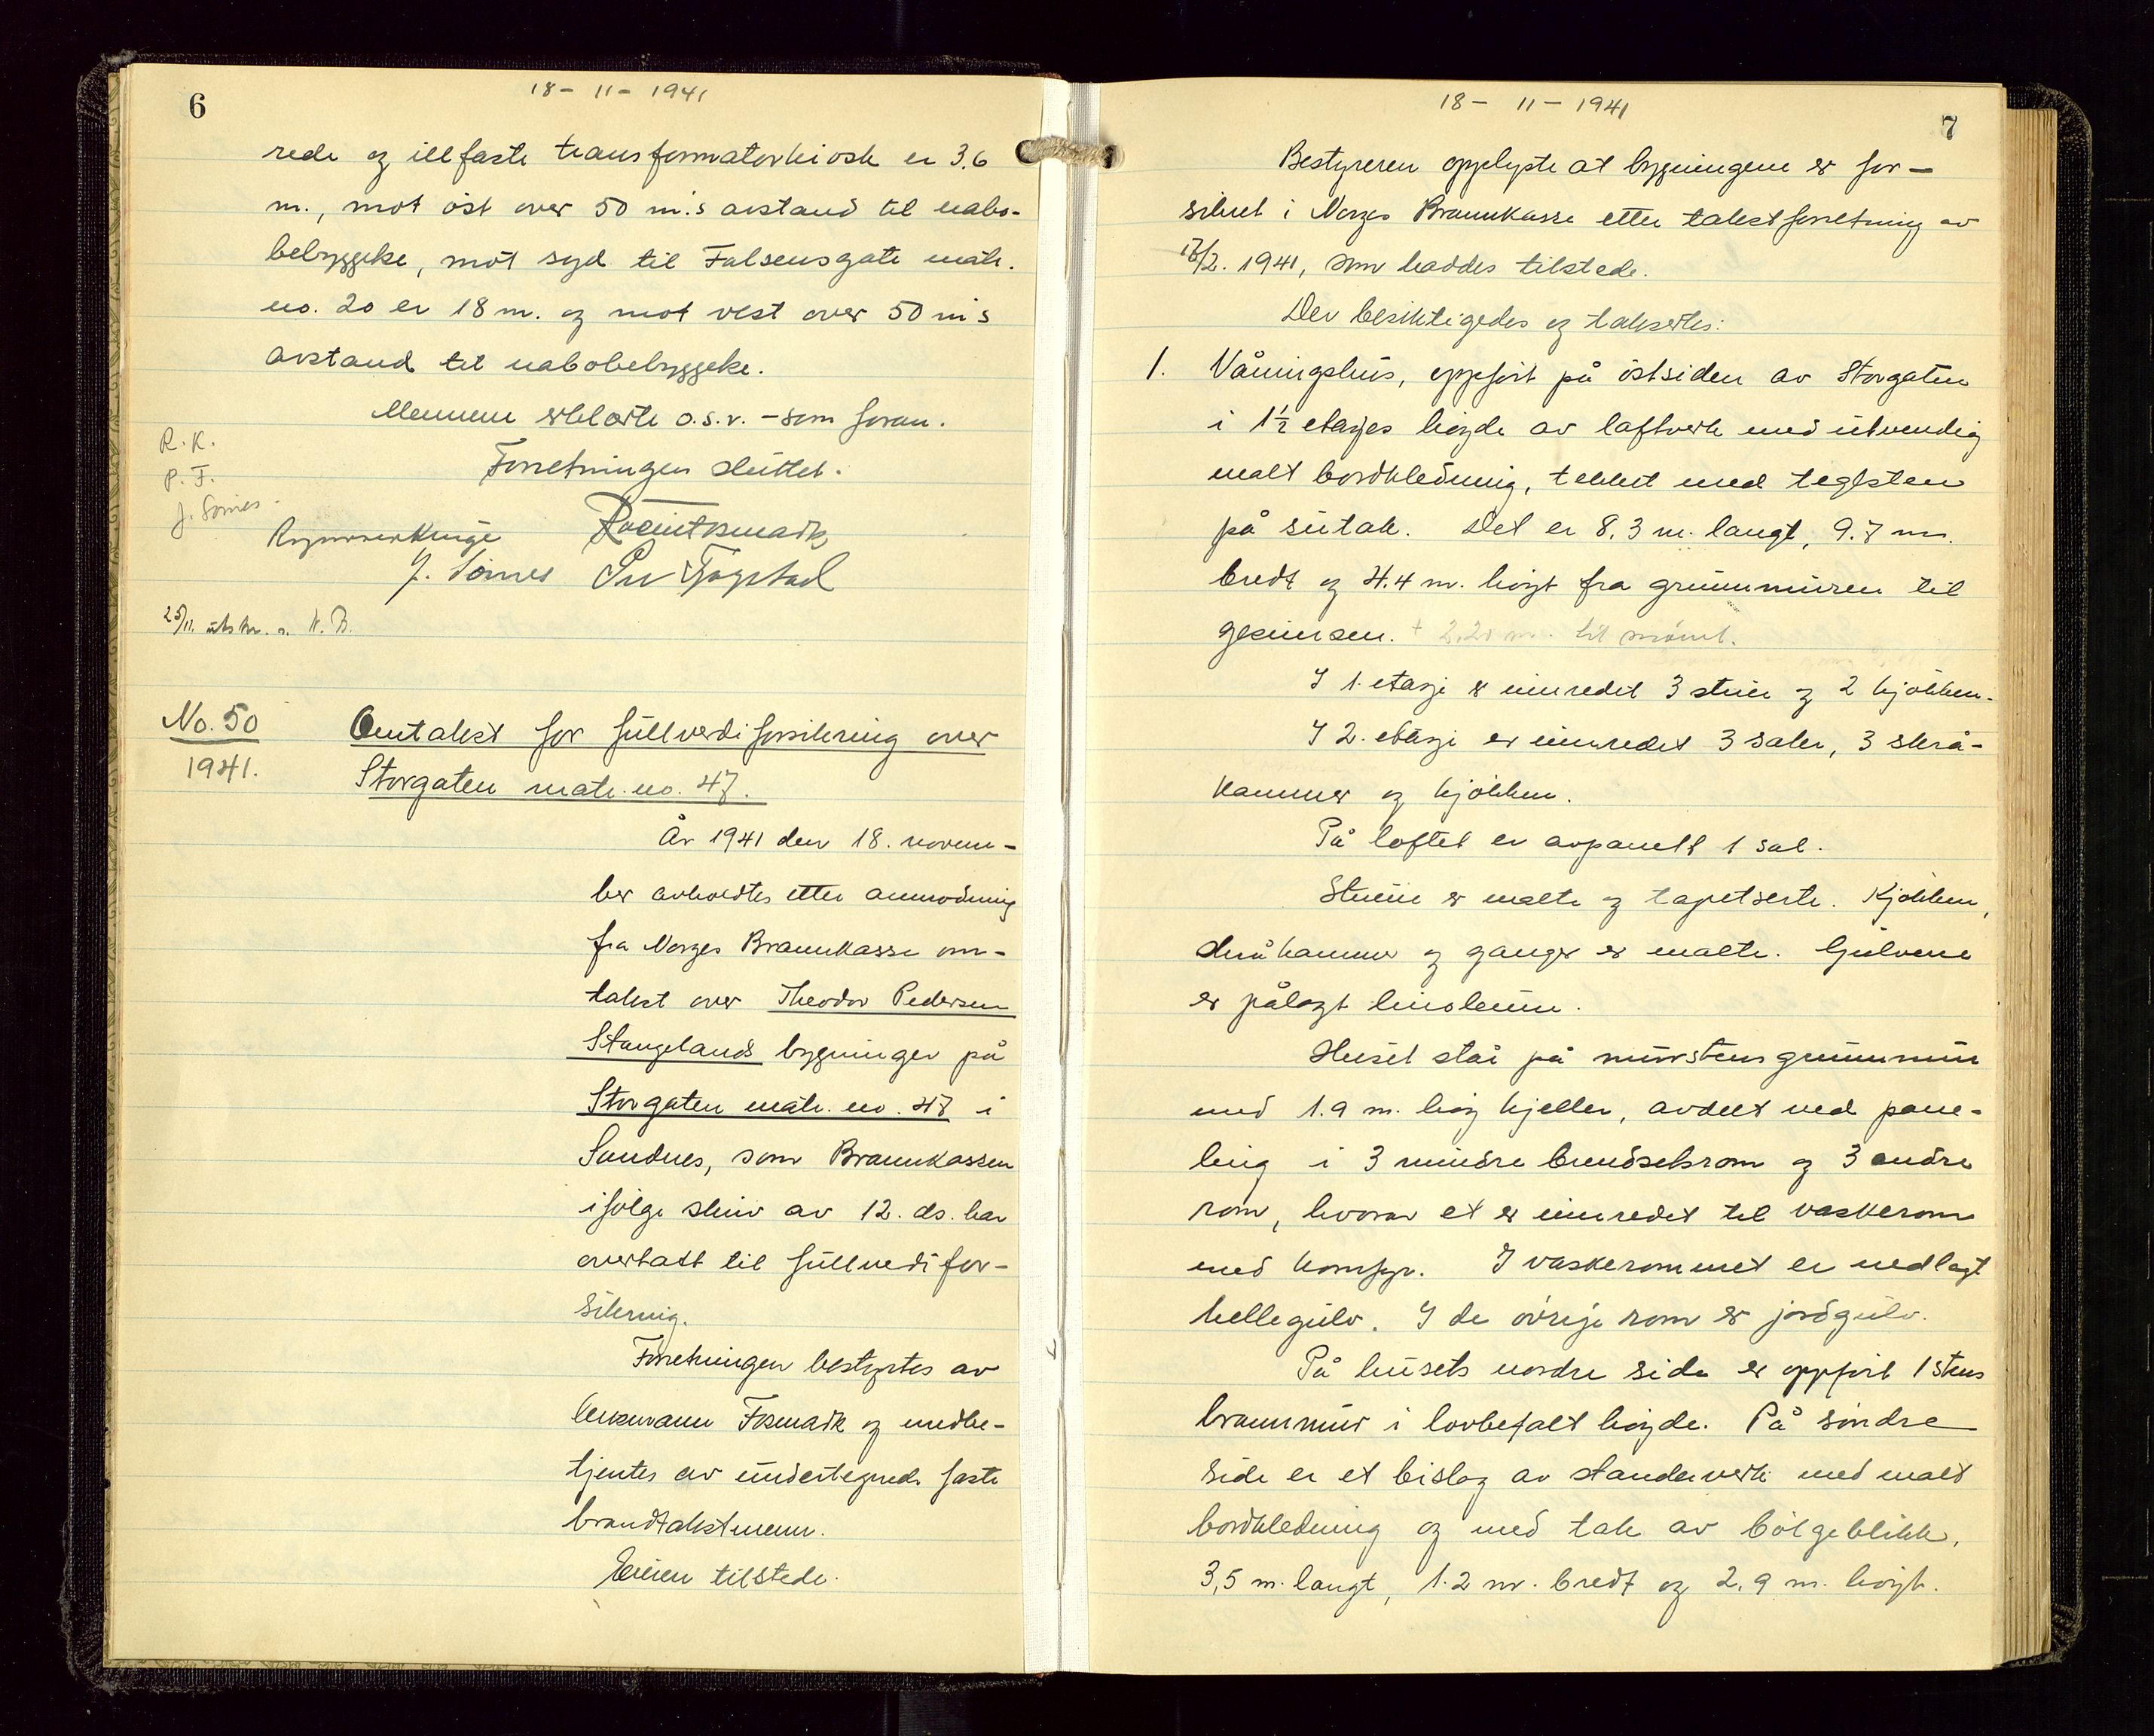 6
18 - 11 - 1941
rede og illfaste transformatorkiosk er 3.6
m., mot öst over 50 m.s avstand til nabo-
bebyggelse, mot syd til Falsensgate matr.
no. 20 er 18 m. og mot vest over 50 m s
avstand til nabobebyggelse.
Mennene erklærte o.s.v. - som foran.
R. K.
P. F.
J. Sömes
Forretningen sluttet.
J. Sömes
25/11. utskr. s. N. B.
No. 50
1941.
Omtakst for fullverdiforsikring over
Storgaten matr. no. 47.
År 1941 den 18. novem-
ber avholdtes etter anmodning
fra Norges Brannkasse om-
takst over Theodor Pedersen
Stangelands bygninger på
Storgaten matr. no. 47 i
Sandnes, som Brannkassen
ifölge skriv av 12. ds. har
overtatt til fullverdifor-
sikring.
Forretningen bestyrtes av
lensmann Fosmark og medbe-
tjentes av undertegnede faste
brandtakstmenn.
Eieren tilstede.
18 - 11 - 1941
7
Bestyreren opplyste at bygningene er for-
sikret i Norges Brannkasse etter takstforretning av
/2. 1941, som haddes tilstede.
Der besiktigedes og taksertes:
1. Våningshus, oppfört på östsiden av Storgaten
i 1½ etasjes höyde av laftverk med utvendig
malt bordkledning, tekket med teglsten
på sutak. Det er 8.3 m. langt, 9.7 m.
bredt og 4.4 m. höyt fra grunnmuren til
gesimsen. + 2.20 m. til mönet.
I 1. etasje er innredet 3 stuer og 2 kjökken.
I 2. etasje er innredet 3 saler, 3 skrå-
kammer og kjökken.
På loftet er avpanelt 1 sal.
Stuene er malte og tapetserte. Kjökken,
skråkammer og ganger er malte. Gulvene
er pålagt linoleum.
Huset står på murstensgrunnmur
med 1.9 m. höy kjeller, avdelt ved pane-
ling i 3 mindre brendselsrom og 3 andre
rom, hvorav et er innredet til vaskerom
med komfyr. I vaskerommet er nedlagt
hellegulv. I de övrige rom er jordgulv.
På husets nordre side er oppfört 1 stens
brannmur i lovbefalt höyde. På söndre
side er et bislag av standerverk med malt
bordkledning og med tak av bölgeblikk,
3,5 m. langt, 1.2 m. bredt og 2.9 m. höyt.